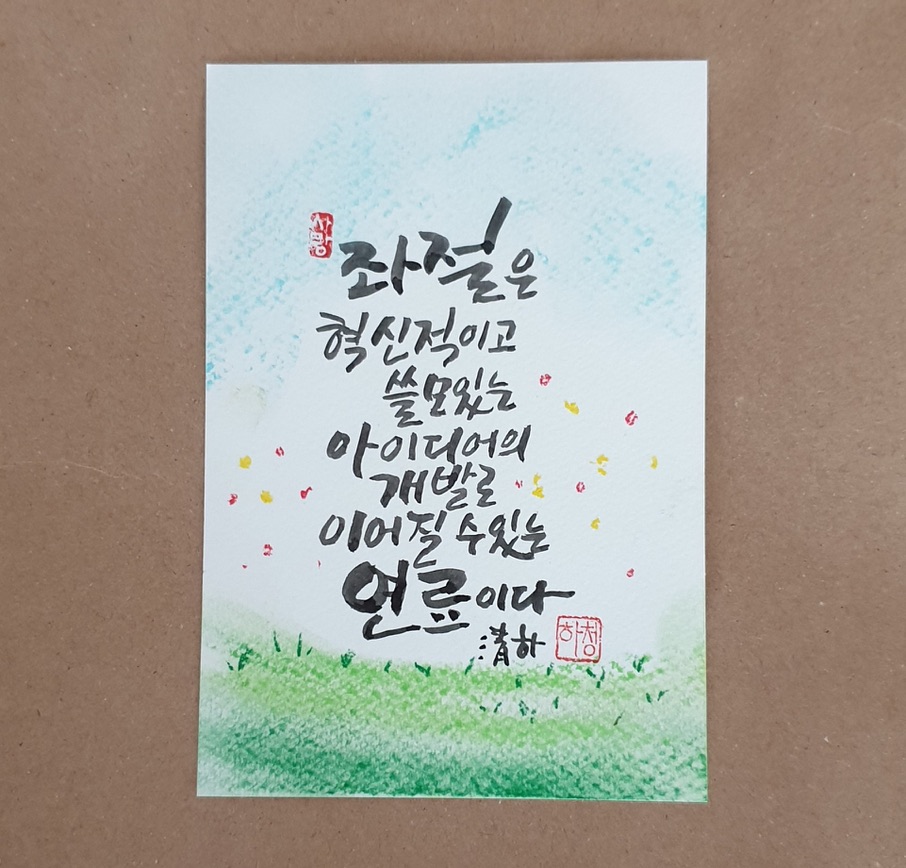 사랑
좌절은
혁신적이고
쓸모있는
아이디어의
개발로
이어질 수 있는
연료이다
淸하
하청